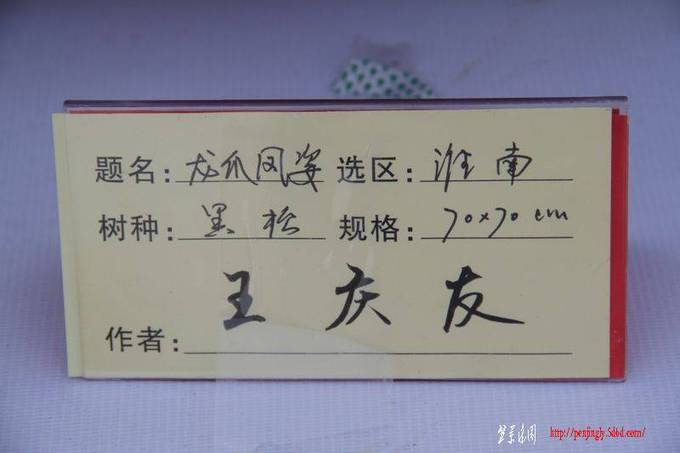 题名：龙爪凤姿 选区：淮南
树种：黑松 规格：70x70cm
作者：王庆友
http://penjingly.5d6d.com/